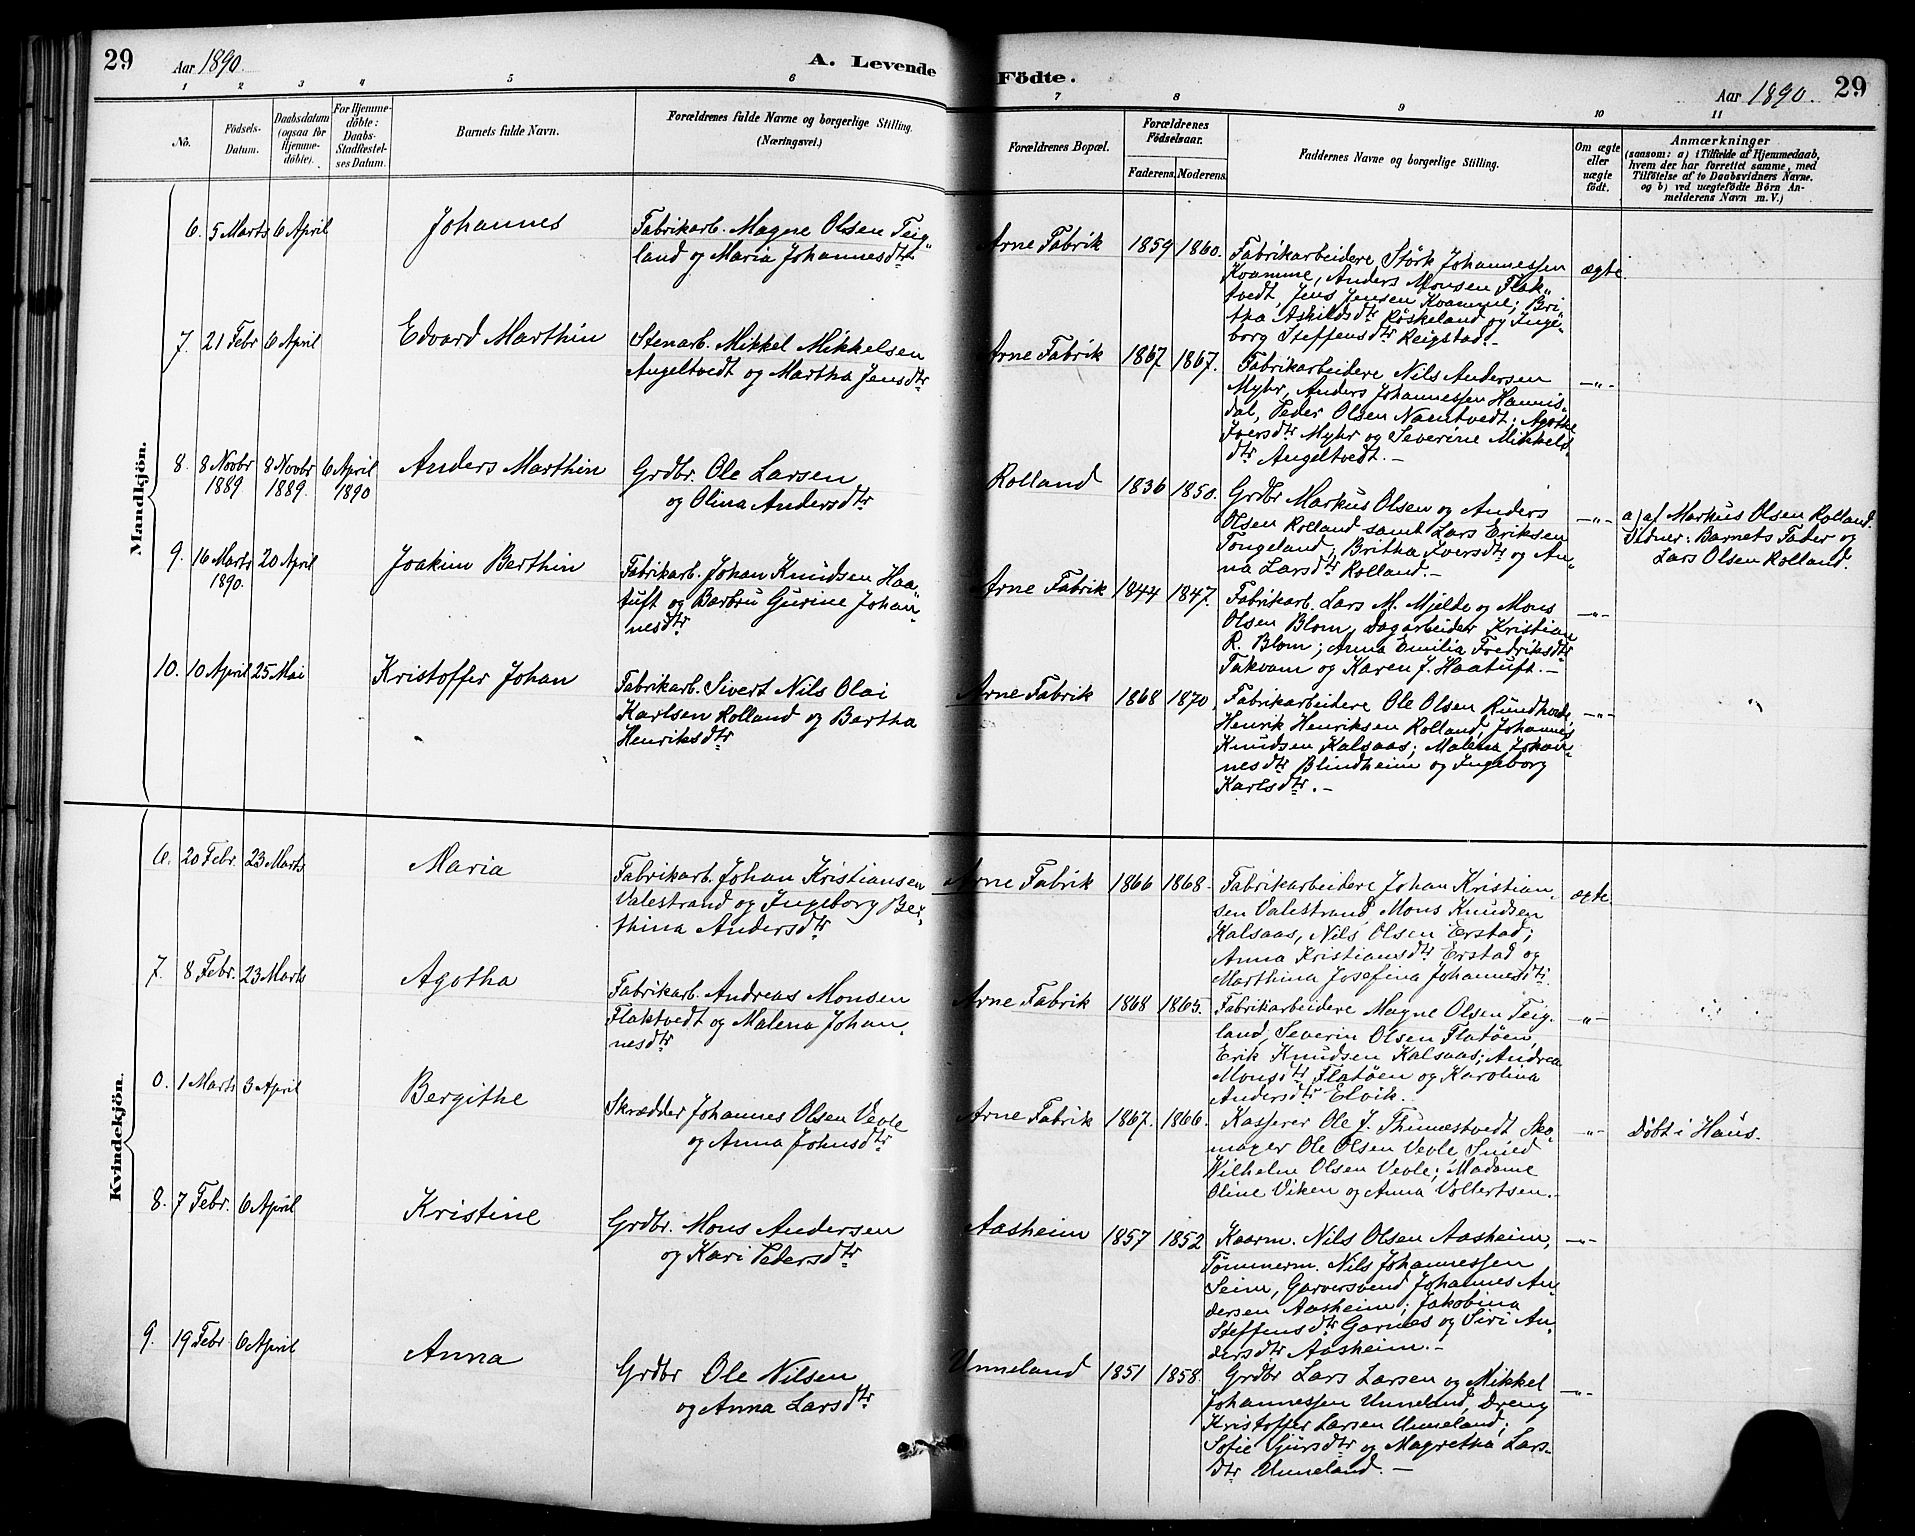 29
Aar 1890.
A. Levende
Födte.
Aar 1890.
29
1 2 3 4 5 6 7 8 9 10 11
No.
Födsels-
Datum.
Daabsdatum
(ogsaa for
Hjemme-
döbte).
For Hjemme-
döbte:
Daabs-
Stadfæstel-
ses Datum.
Barnets fulde Navn.
Forældrenes fulde Navne og borgerlige Stilling.
(Næringsvei.)
Forældrenes Bopæl.
Forældrenes
Födselsaar.
Faderens. Moderens.
Faddernes Navne og borgerlige Stilling.
Om ægte
eller
uægte
födt.
Anmærkninger
(saasom: a) i Tilfælde af Hjemmedaab,
hvem der har forrettet samme, med
Tilföielse af to Daabsvidners Navne.
og b) ved uægtefödte Börn An-
melderens Navn m. V.)
Mandkjön.
6. 5 Marts 6 April
Johannes
Fabrikarb. Magne Olsen Teig-
land og Maria Johannesdtr
Arne Fabrik 1859 1860.
Fabrikarbeidere Störk Johannessen
Kvamme, Anders Monsen Flak-
tvedt, Jens Jensen Kvamme; Bri-
tha Askildsdtr Röskeland og Inge-
borg Steffensdtr Reigstad.-
ægte
7. 21 Febr 6 April
Edvard Marthin
Stenarb. Mikkel Mikkelsen
Angeltvedt og Martha Jensdtr
Arne Fabrik 1867 1867.
Fabrikarbeidere Nils Andersen
Myhr, Anders Johannessen Hannis-
dal, Peder Olsen Namtvedt; Agothe
Iversdtr Myhr og Severine Mikkels-
dtr Angeltvedt.-
-"-
8. 8 Novbr 8 Novbr 6 April
1889 1889. 1890
Anders Marthin
Grdbr. Ole Larsen
og Olina Andersdtr
Rolland 1836 1850.
Grdbr Markus Olsen og Anders
Olsen Rolland samt Lars Eriksen
Tongeland; Britha Iversdtr og An-
na Larsdtr Rolland.-
-"-
a) af Markus Olsen Rolland.
Vidner: Barnets Fader og
Lars Olsen Rolland.
9. 16 Marts 20 April
1890.
Joakim Berthin
Fabrikarb. Johan Knudsen Haa-
tuft og Barbru Gurine Johan-
nesdtr
Arne Fabrik 1844 1847.
Fabrikarb. Lars M. Mjelde og Mons
Olsen Blom, Dagarbeider Kristian
R. Blom; Anna Emilia Fredriksdtr
Takvam og Karen J. Haatuft.-
-"-
10. 10 April 25 Mai
Kristoffer Johan
Fabrikarb. Sivert Nils Olai
Karlsen Rolland og Bartha
Henriksdtr
Arne Fabrik 1868 1870.
Fabrikarbeidere Ole Olsen Rundhovde,
Henrik Henriksen Rolland, Johannes
Knudsen Kalsaas; Malena Johan-
nesdtr Blindheim og Ingeborg
Karlsdtr.-
-"-
Kvindekjön.
6. 20 Febr. 23 Marts
Maria
Fabrikarb. Johan Kristiansen
Valestrand og Ingeborg Ber-
thina Andersdtr
Arne Fabrik 1866 1868.
Fabrikarbeidere Johan Kristian-
sen Valestrand, Mons Knudsen
Kalsaas, Nils Olsen Erstad;
Anna Kristiansdtr Erstad og
Marthina Josefina Johannesdtr.
ægte
7. 8 Febr. 23 Marts
Agotha
Fabrikarb. Andreas Monsen
Flaktvedt og Malena Johan-
nesdtr
Arne Fabrik 1868 1865.
Fabrikarbeidere Magne Olsen Teig-
land, Severin Olsen Flatöen,
Erik Knudsen Kalsaas; Andrea
Monsdtr Flatöen og Karolina
Andersdtr Elvik.
-"-
0. 1 Marts 3 April
Bergithe
Skrædder Johannes Olsen Vevle
og Anna Johnsdtr
Arne Fabrik 1867. 1866.
Kasserer Ole J. Thunestvedt Sko-
mager Ole Olsen Vevle, Smed
Wilhelm Olsen Vevle; Madame
Oline Viken og Anna Vollertsen.-
-"-
Döbt i Haus.
8. 7 Febr. 6 April
Kristine
Grdbr. Mons Andersen
og Kari Pedersdtr
Aasheim 1857 1852
Kaarm. Nils Olsen Aasheim,
Tömmerm. Nils Johannessen
Seim, Garversvend Johannes An-
dersen Aasheim; Jakobina
Steffensdtr Garnes og Siri An-
dersdtr Aasheim.-
-"-
9. 19 Febr 6 April
Anna
Grdbr Ole Nilsen
og Anna Larsdtr
Unneland 1851 1858
Grdbr Lars Larsen og Mikkel
Johannessen Unneland, Dreng
Kristoffer Larsen Unneland;
Sofie Gjürsdtr og Magretha Lars-
dtr Unneland.-
-"-